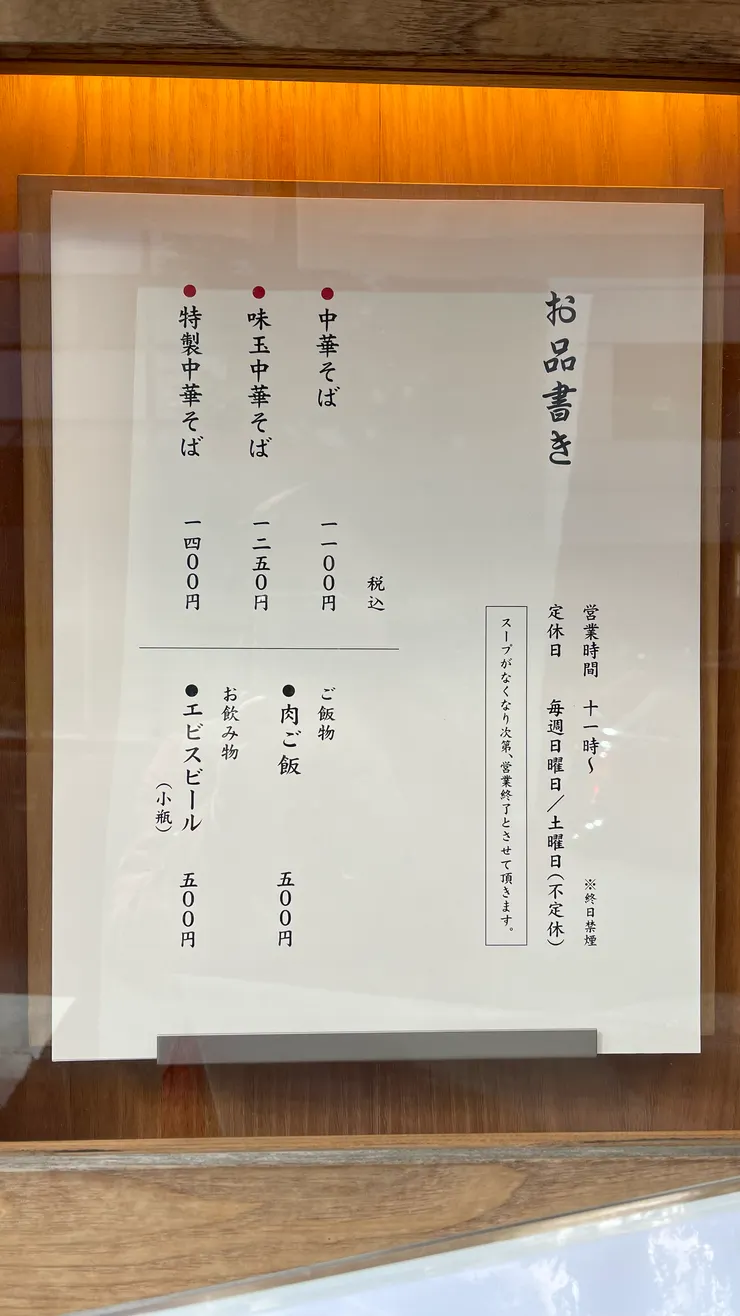 お品書き
営業時間 十一時〜 ※終日禁煙
定休日 毎週日曜日／土曜日(不定休)
スープがなくなり次第、営業終了とさせて頂きます。
税込
●中華そば 一一００円
●味玉中華そば 一二五０円
●特製中華そば 一四００円
ご飯物
●肉ご飯 五００円
お飲み物
●エビスビール 五００円
(小瓶)